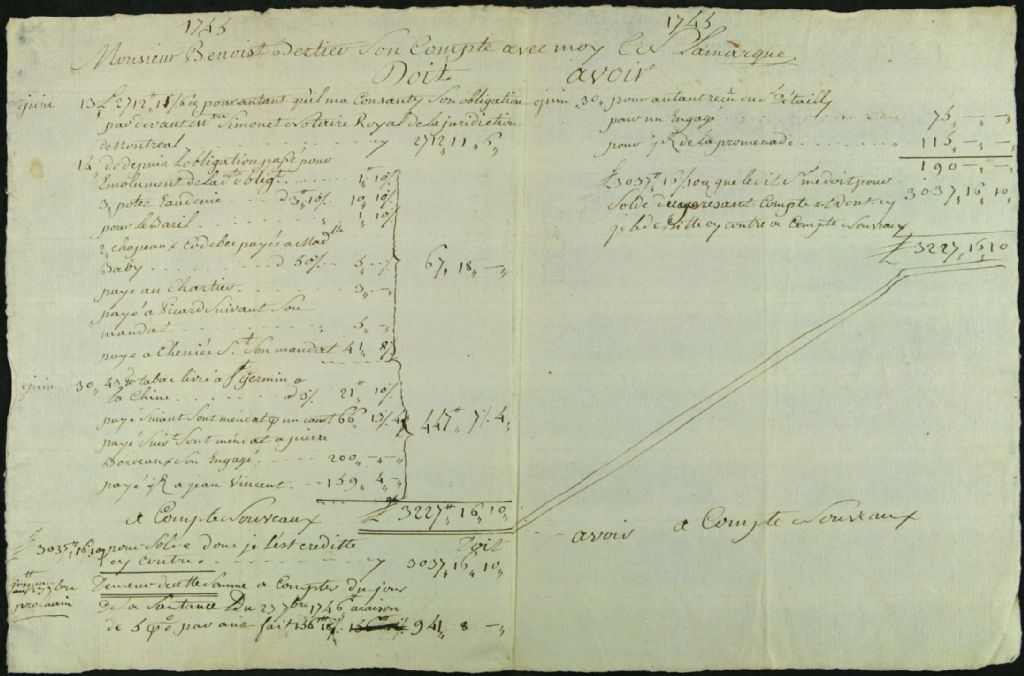 1745
1745
Monsieur Benoist Bertier Son Compte avec moy Lamarque
Doit
avoir
juin 13 £ 2712 11/6 pour autant qu'il m'a Consanty Son obligation
pardevant Me Simonet Notaire Royal de la juridiction
de Montreal 2712 11 6
de depuis L'obligation passé pour
Emolument de lad obligt 1 10
3 potes Eaudevie a 3 10 10 10
pour le Baril 1 10
2 chapeaux Codebec payée a Madlle
Baby a 50 5 -
payé au Chartier 3 -
67 18 -
payé a Picard Suivant Son
mandat 5 -
payé a Cheniée St Son mandat 41 8
juin 30 43 tabac livré a St Germin a
La Chine a 21 10
payé Suivant Son mendat 66 13 4
payé Suivt Son mendat a pierre
447 7 4
Bordeaux Son Engagé 200 - -
payé a jean Vincent 159 4 -
£ 3227 16 10
A Compte Nouveaux
Doit
£ 3037 16 10 pour Solde dont je l'est creditte
cy contre 3037 16 10
prochain
Demeur cette Somme a Compter du jour
de la Santance Du 23 1746 a raison
de 5 par an fait 156 941 8 -
juin 30 pour autant recu du Sr Détailly
pour un Engagé 75 - -
pour de La promenade 115 - -
190 - -
£ 3037 16/10 que le dit Sr me doit pour
Solde du present Compte et dont
3037 16 10
je le debitte cy contre a Compte Nouveaux
£ 3227 16 10
avoir a Compte Nouveaux